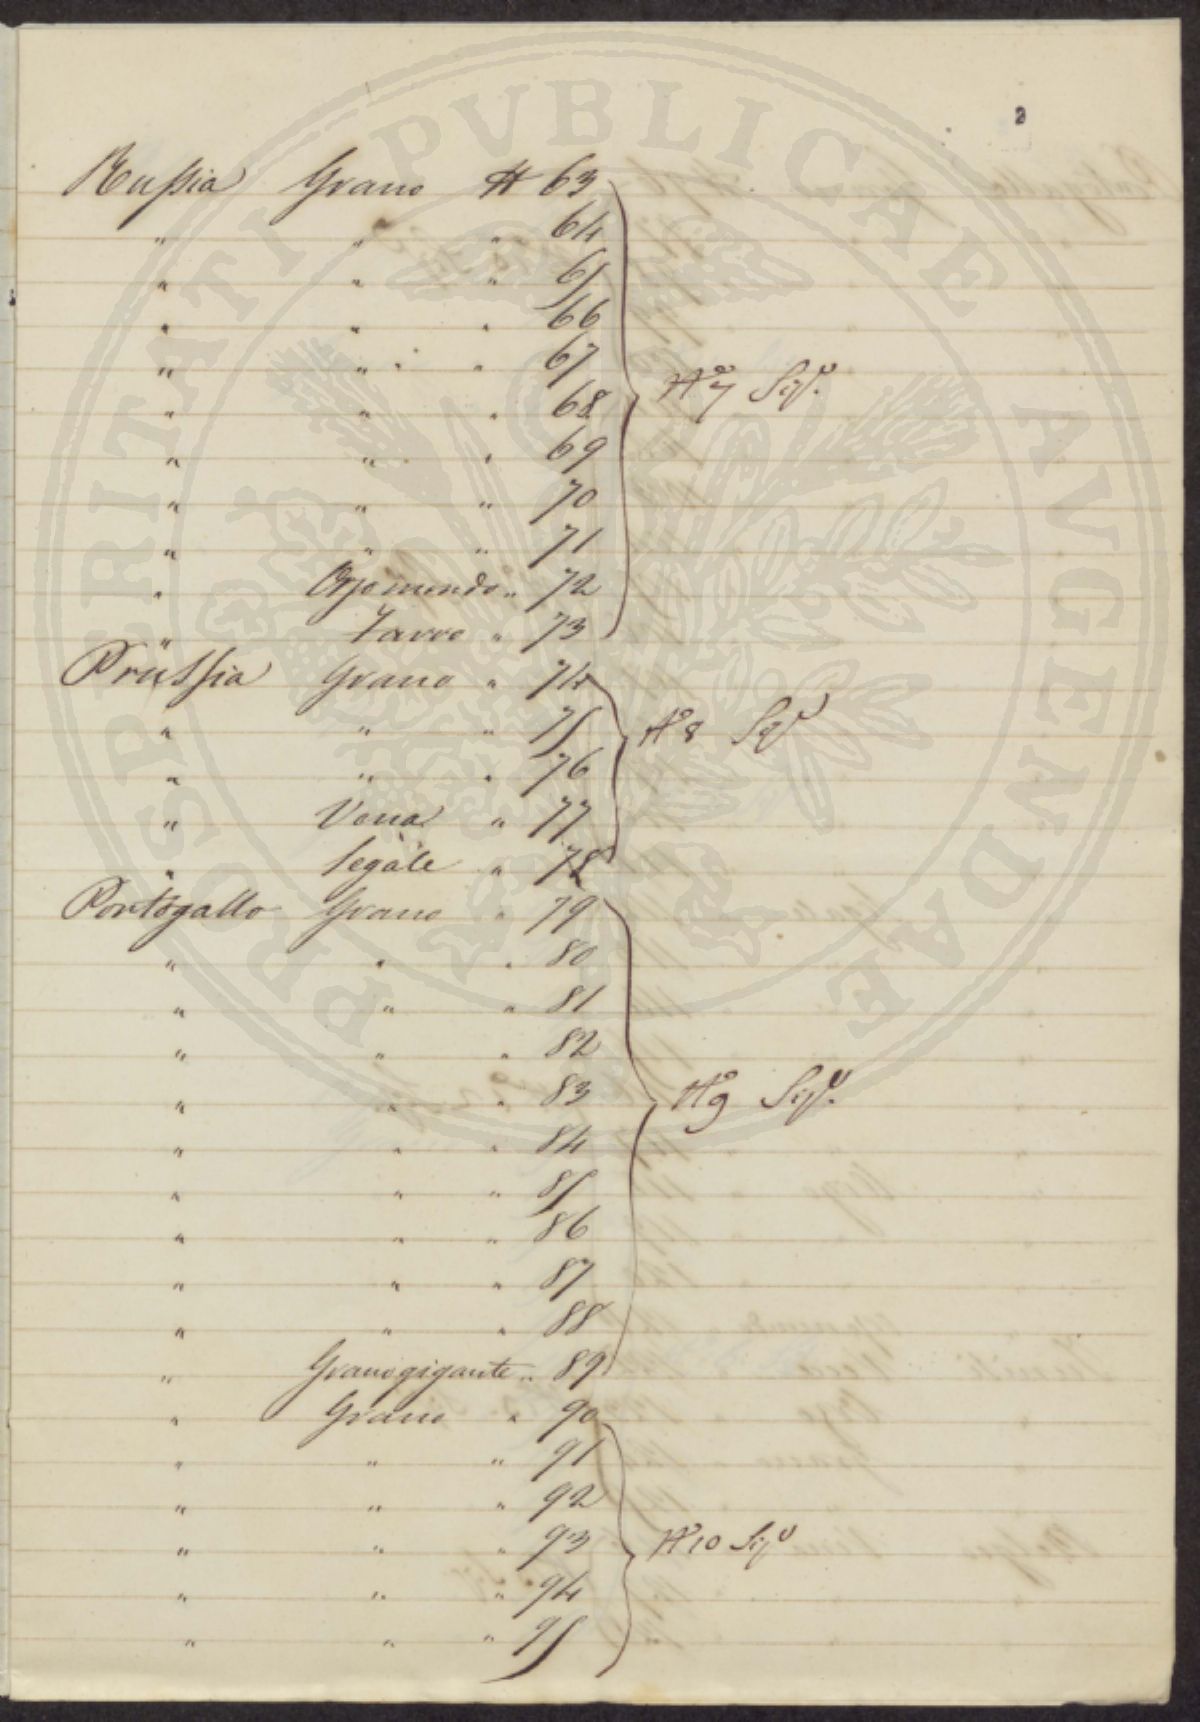 PROSPERITATI PVBLICAE AVGENDAE
2
Russia Grano N 63
" " " 64
" " " 65
" " " 66
" " " 67
" " " 68
N° 7
" " " 69
" " " 70
" " " 71
" Orjo mundo " 72
" Farro " 73
Prussia Grano " 74
" " " 75
N° 8
" " " 76
" Vena " 77
" Segale " 78
Portogallo Grano " 79
" " " 80
" " " 81
" " " 82
" " " 83
N° 9
" " " 84
" " " 85
" " " 86
" " " 87
" " " 88
" Grano gigante " 89
" Grano " 90
" " " 91
" " " 92
" " " 93
N° 10
" " " 94
" " " 95